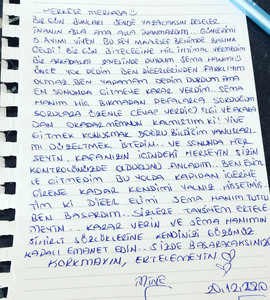 HERKESE MERHABA
BİR GÜN BUNLARI SENDE YAZACAKSIN DESELER
İNANIN ASLA AMA ASLA İNANMAZDIM...
O AYIMI YİYEN BU ŞEY MAALESEF BENİMDE BAŞIMA
GELDİ! BİR GÜN BİTECEĞİNE HİÇ İHTİMAL VERMEDİM
BİR ARKADAŞIM SAYESİNDE DUYDUM SEMA HANIMI
ÖNCE YOK DEDİM BEN DİĞERLERİNDEN FARKLIYIM
OLMAZ BEN YAPAMAM DEDİM DURDUM AMA
EN SONUNDA GİTMEYE KARAR VERDİM. SEMA
HANIM HİÇ BIKMADAN DEFALARCA SORDUĞUM
SORULARA ÖZENLE CEVAP VERDİ
DAN OKADAR MEMNUN KALMIŞTIM Kİ! YİNE
GİTMEK KONUŞMAK DOĞRU BİLDİĞİM YANLIŞLARI
MI DÜZELTMEK İSTEDİM.. VE SONUNDA HER
ŞEYİN, KAFANIZIN İÇİNDEKİ HERŞEYİN SİZİN
KONTROLÜNÜZDE OLDUĞUNU ANLADIM.. BEN
LE GİTMEDİM BU YOLDA KAPIDAN İÇERİYE
GİRENE KADAR KENDİMİ YALNIZ HİSSETMİŞ
TİM Kİ DİĞER ELİMİ SEMA HANIM TUTTU
BEN BAŞARDIM... SİZLERE TAVSİYEM ERTELE
MEYİN... KARAR VERİN VE SEMA HANIMIN
SİHİRLİ SÖZCÜKLERİNE KENDİNİZİ GÖZÜNÜZ
KAPALI EMANET EDİN... SİZDE BAŞARACAKSINIZ
KORKMAYIN, ERTELEMEYİN
MİNE
20.12.2020